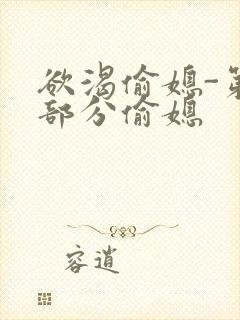 欲渴偷媳-第
部分偷媳
容逍